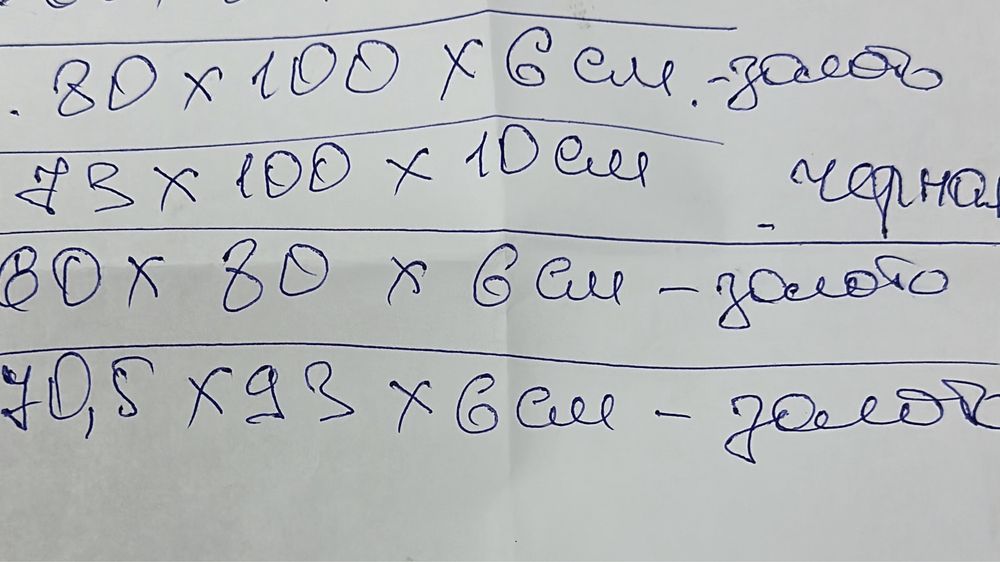 80 х 100 х 6 см. - золото
73 х 100 х 10 см - черная
80 х 80 х 6 см - золото
70,5 х 93 х 6 см - золото